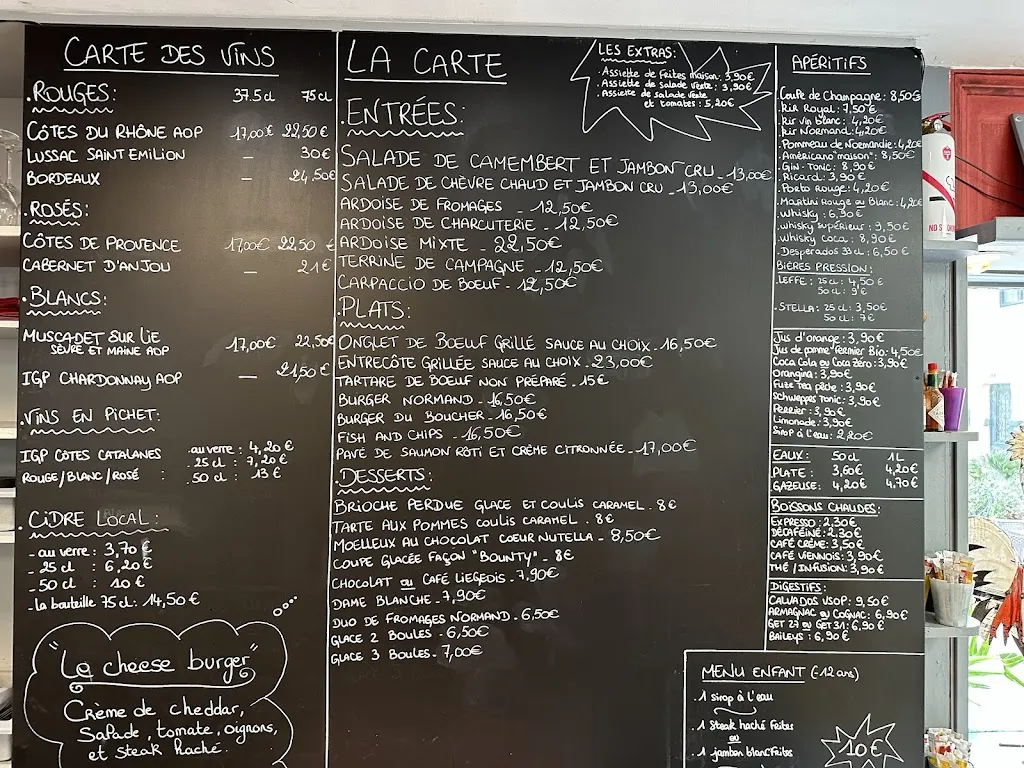 CARTE DES VINS
.ROUGES: 37.5cl 75cl
CÔTES DU RHÔNE AOP 17,00€ 22,50€
LUSSAC SAINT EMILION - 30€
BORDEAUX - 24,50€
.ROSÉS:
CÔTES DE PROVENCE 17,00€ 22,50 €
CABERNET D'ANJOU - 21€
.BLANCS:
MUSCADET SUR LIE 17,00€ 22,50€
SÈVRE ET MAINE AOP
IGP CHARDONNAY AOP - 21,50€
.VINS EN PICHET:
IGP CÔTES CATALANES au verre : 4,20€
. 25 cl : 7,20€
ROUGE/BLANC/ROSÉ : . 50 cl : 13€
. CIDRE LOCAL:
- au verre : 3,70 €
- 25 cl : 6,20€
- 50 cl : 10€
- la bouteille 75 cl : 14,50€
"Le cheese burger"
Crème de cheddar,
Salade, tomate, oignons,
et Steak Haché.
LA CARTE
LES EXTRAS:
. Assiette de Frites maison: 3,90€
. Assiette de Salade Verte : 3,90€
. Assiette de salade Verte
et tomates : 5,20€
.ENTRÉES:
SALADE DE CAMEMBERT ET JAMBON CRU - 13,00€
SALADE DE CHÈVRE CHAUD ET JAMBON CRU - 13,00€
ARDOISE DE FROMAGES - 12,50€
ARDOISE DE CHARCUTERIE - 12,50€
ARDOISE MIXTE - 22,50€
TERRINE DE CAMPAGNE - 12,50€
CARPACCIO DE BOEUF - 12,50€
.PLATS:
ONGLET DE BOEUF GRILLÉ SAUCE AU CHOIX - 16,50€
ENTRECÔTE GRILLÉE SAUCE AU CHOIX - 23,00€
TARTARE DE BOEUF NON PRÉPARÉ - 15€
BURGER NORMAND - 16,50€
BURGER DU BOUCHER - 16,50€
FISH AND CHIPS - 16,50€
PAVÉ DE SAUMON RÔTI ET CRÈME CITRONNÉE - 17,00€
.DESSERTS:
BRIOCHE PERDUE GLACE ET COULIS CARAMEL - 8€
TARTE AUX POMMES COULIS CARAMEL - 8€
MOELLEUX AU CHOCOLAT COEUR NUTELLA - 8,50€
COUPE GLACÉE FAÇON "BOUNTY" - 8€
CHOCOLAT ou CAFÉ LIEGEOIS - 7,90€
DAME BLANCHE - 7,90€
DUO DE FROMAGES NORMAND - 6,50€
GLACE 2 BOULES - 6,50€
GLACE 3 BOULES - 7,00€
APÉRITIFS
Coupe de Champagne : 8,50€
Kir Royal : 7,50€
Kir vin blanc : 4,20€
Kir Normand : 4,20€
Pommeau de Normandie : 4,20€
Américano "maison" : 8,50€
Gin-Tonic : 8,90€
Ricard : 3,90€
Porto Rouge : 4,20€
Martini Rouge ou Blanc : 4,20€
Whisky : 6,30€
whisky supérieur : 9,50€
whisky coca : 8,90€
Desperados 33cl : 6,50€
BIÈRES PRESSION:
.LEFFE: 25 cl : 4,50 €
50 cl : 9€
.STELLA: 25 cl : 3,50€
50 cl : 7€
Jus d'orange : 3,90€
Jus de pomme "Fermier Bio : 4,50€
Coca Cola ou Coca Zéro : 3,90€
Orangina : 3,90€
Fuze Tea pêche : 3,90€
Schweppes Tonic : 3,90€
Perrier : 3,90€
Limonade : 3,90€
Sirop à l'eau : 2,20€
EAUX: 50cl 1L
PLATE : 3,60€ 4,20€
GAZEUSE: 4,20€ 4,70€
BOISSONS CHAUDES:
EXPRESSO : 2,30€
DÉCAFÉINÉ : 2,30€
CAFÉ CRÈME : 3,50€
CAFÉ VIENNOIS : 3,90€
THÉ / INFUSION : 3,90€
DIGESTIFS:
CALVADOS VSOP : 9,50€
ARMAGNAC ou COGNAC : 6,90€
GET 27 ou GET 31 : 6,90€
BAILEYS : 6,90€
MENU ENFANT (-12 ans)
. 1 sirop à l'eau
. 1 Steak haché Frites
ou
. 1 jambon blanc Frites
10€